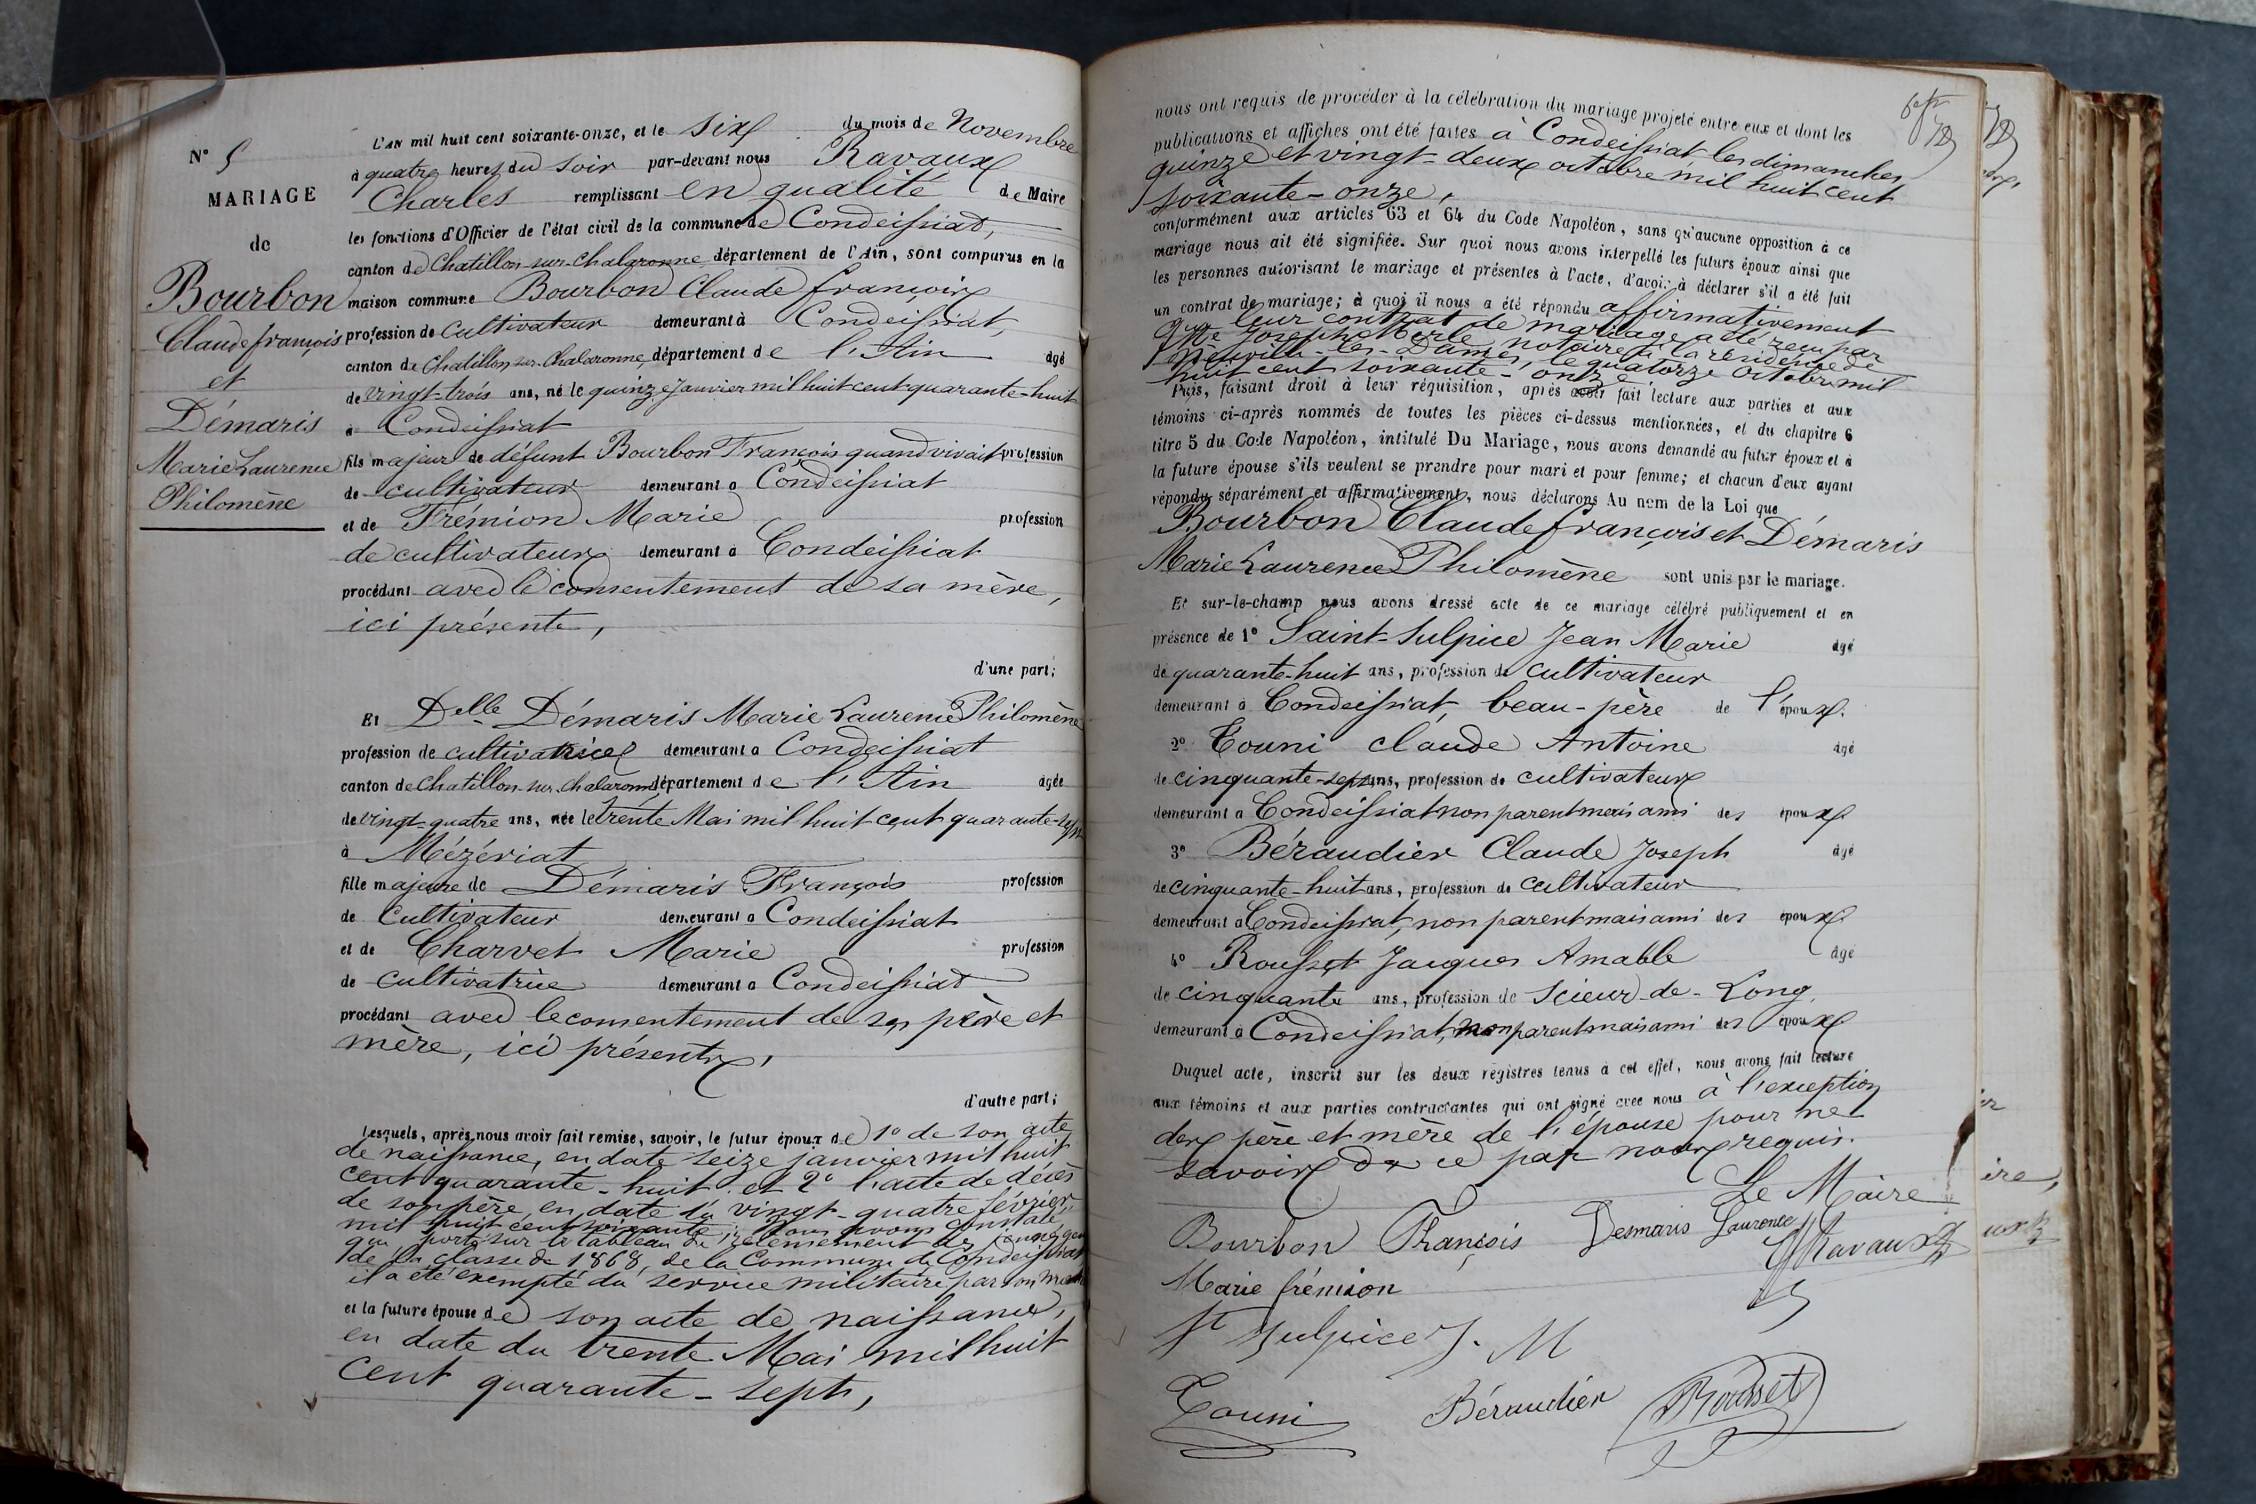 N° 5
MARIAGE
de
Bourbon
Claude françois
et
Démaris
Marie Laurence
Philomène
L'AN mil huit cent soixante-onze, et le six du mois de Novembre
à quatre heures du soir par-devant nous Ravaux
Charles remplissant en qualité de Maire
les fonctions d'Officier de l'état civil de la commune de Condeissiat,
canton de Chatillon-sur-Chalaronne département de l'Ain, sont comparus en la
maison commune Bourbon Claude françois
profession de cultivateur demeurant à Condeissiat,
canton de Chatillon-sur-Chalaronne, département de l'Ain âgé
de vingt-trois ans, né le quinze Janvier mil huit cent quarante-huit
à Condeissiat
fils majeur de défunt Bourbon François quand vivait profession
de cultivateur demeurant à Condeissiat
et de Frémion Marie profession
de cultivateur demeurant à Condeissiat
procédant avec le consentement de sa mère,
ici présente,
d'une part;
Et Delle Démaris Marie Laurence Philomène
profession de cultivatrice demeurant à Condeissiat
canton de Chatillon-sur-Chalaronne département de l'Ain âgée
de vingt-quatre ans, née le trente Mai mil huit cent quarante-sept
à Mézériat
fille majeure de Démaris François profession
de Cultivateur demeurant à Condeissiat
et de Charvet Marie profession
de cultivatrice demeurant à Condeissiat
procédant avec le consentement de ses père et
mère, ici présents,
d'autre part;
Lesquels, après nous avoir fait remise, savoir, le futur époux de 1° de son acte
de naissance, en date seize janvier mil huit
cent quarante-huit et 2° l'acte de décès
de son père, en date du vingt-quatre février
mil huit cent soixante; Nous avons constaté
que porté sur le tableau de recensement des jeunes gens
de la classe de 1868, de la Commune de Condeissiat
il a été exempté du service militaire par son
et la future épouse de son acte de naissance,
en date du trente Mai mil huit
cent quarante-sept,
nous ont requis de procéder à la célébration du mariage projeté entre eux et dont les
publications et affiches ont été faites à Condeissiat, les dimanches
quinze et vingt-deux octobre mil huit cent
soixante-onze,
conformément aux articles 63 et 64 du Code Napoléon, sans qu'aucune opposition à ce
mariage nous ait été signifiée. Sur quoi nous avons interpellé les futurs époux ainsi que
les personnes autorisant le mariage et présentes à l'acte, d'avoir à déclarer s'il a été fait
un contrat de mariage; à quoi il nous a été répondu affirmativement
que leur contrat de mariage a été reçu par
Me Joseph Merle, notaire à la résidence de
Neuville-les-Dames, le quatorze Octobre mil
huit cent soixante-onze
Puis, faisant droit à leur réquisition, après avoir fait lecture aux parties et aux
témoins ci-après nommés de toutes les pièces ci-dessus mentionnées, et du chapitre 6
titre 5 du Code Napoléon, intitulé Du Mariage, nous avons demandé au futur époux et à
la future épouse s'ils veulent se prendre pour mari et pour femme; et chacun d'eux ayant
répondu séparément et affirmativement, nous déclarons Au nom de la Loi que
Bourbon Claude françois et Démaris
Marie Laurence Philomène sont unis par le mariage.
Et sur-le-champ nous avons dressé acte de ce mariage célébré publiquement et en
présence de 1° Saint-Sulpice Jean Marie âgé
de quarante-huit ans, profession de cultivateur
demeurant à Condeissiat, beau-père de l'époux.
2° Touni Claude Antoine âgé
de cinquante-sept ans, profession de cultivateur
demeurant à Condeissiat non parent mais ami des époux
3° Béraudier Claude Joseph âgé
de cinquante-huit ans, profession de cultivateur
demeurant à Condeissiat, non parent mais ami des époux
4° Rousset Jacques Amable âgé
de cinquante ans, profession de Scieur-de-Long,
demeurant à Condeissiat, non parent mais ami des époux
Duquel acte, inscrit sur les deux régistres tenus à cet effet, nous avons fait lecture
aux témoins et aux parties contractantes qui ont signé avec nous à l'exception
des père et mère de l'épouse pour ne
savoir de ce par nous requis.
Le Maire
Bourbon François Desmaris Laurence Ravaux
Marie frémion
St Sulpice J. M
Touni Béraudier Rousset